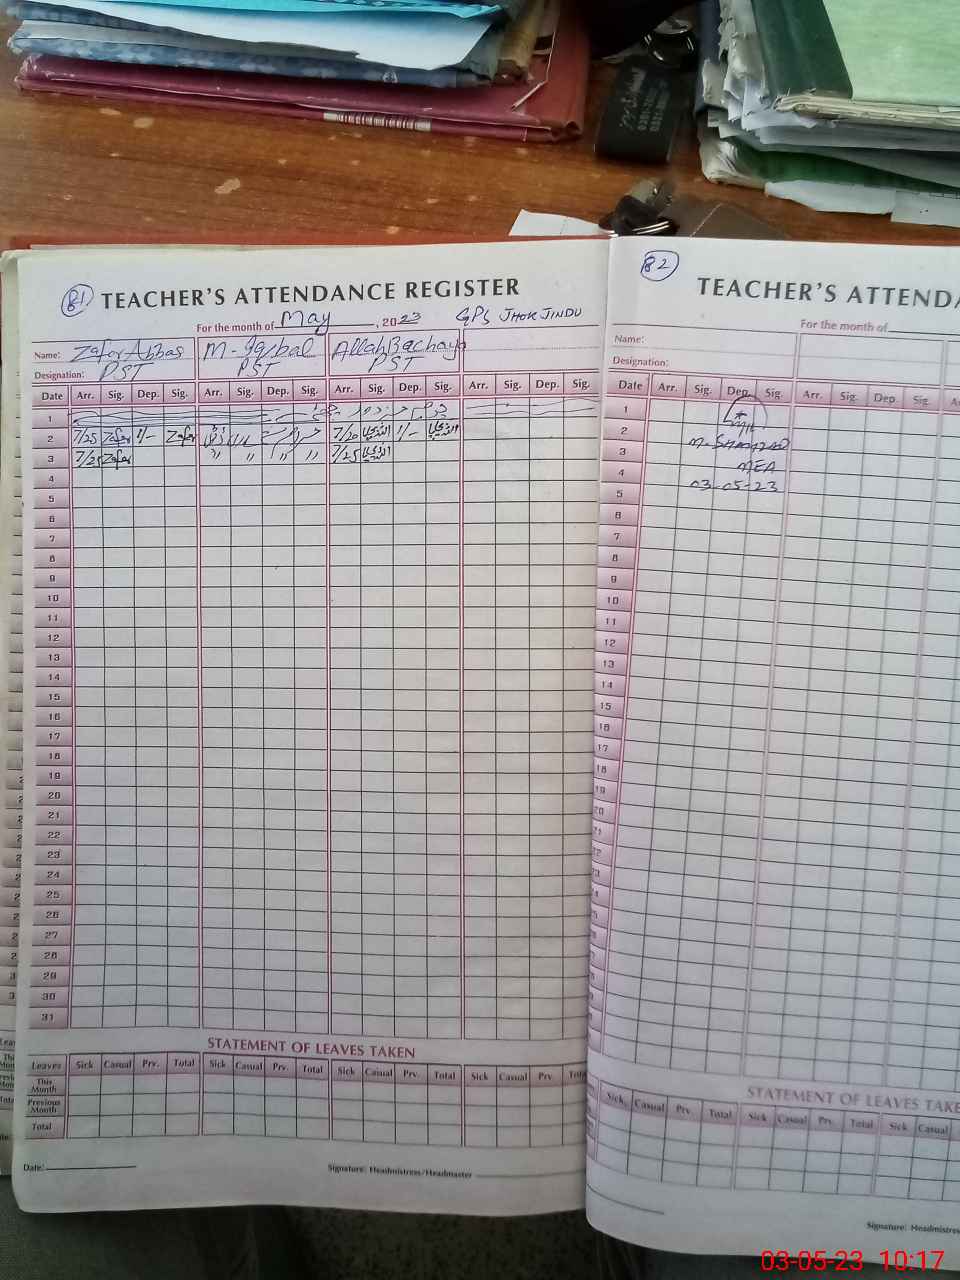 81 TEACHER'S ATTENDANCE REGISTER
For the month of May, 2023 GPS JHOK JINDU
Name: Zafar Abbas M-Iqbal Allah Bachaya
Designation: PST PST PST
Date Arr. Sig. Dep. Sig. Arr. Sig. Dep. Sig. Arr. Sig. Dep. Sig. Arr. Sig. Dep. Sig.
1
2 7/25 Zafar 1/- Zafar 7/20 1/-
3 7/25 Zafar 〃 〃 〃 〃 7/25
4
5
6
7
8
9
10
11
12
13
14
15
16
17
18
19
20
21
22
23
24
25
26
27
28
29
30
31
STATEMENT OF LEAVES TAKEN
Leaves Sick Casual Prv. Total Sick Casual Prv. Total Sick Casual Prv. Total Sick Casual Prv Total
This Month
Previous Month
Total
Date:
Signature: Headmistress/Headmaster
82
TEACHER'S ATTENDA
For the month of
Name:
Designation:
Date Arr. Sig. Dep. Sig. Arr. Sig. Dep. Sig.
1
2
3 M-SHAHZAD
4 MEA
5 03-05-23
6
7
8
9
10
11
12
13
14
15
16
17
18
19
20
STATEMENT OF LEAVES TAKE
Sick Casual Prv. Total Sick Casual Prv. Total Sick Casual
Signature: Headmistre
03-05-23 10:17